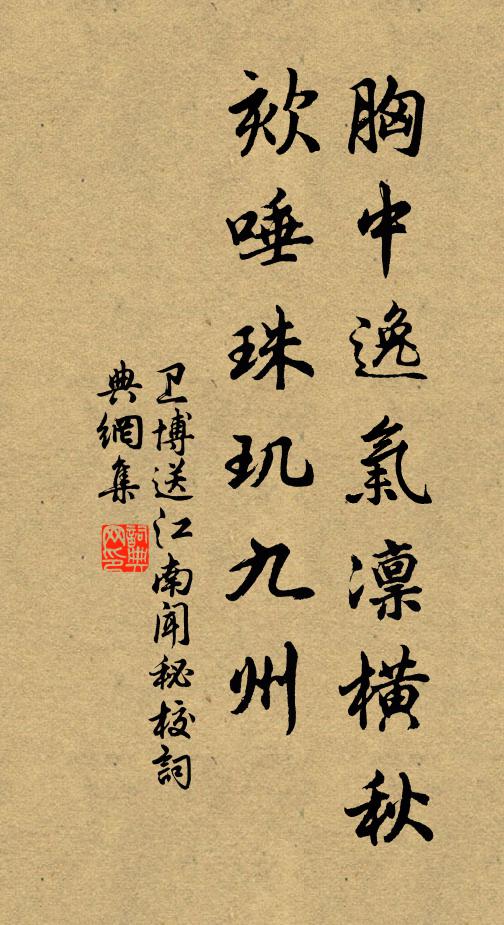 胸中逸氣凛橫秋
欬唾珠玑九州
卫博送江南聞秘校詞
典網集
詞典
网印